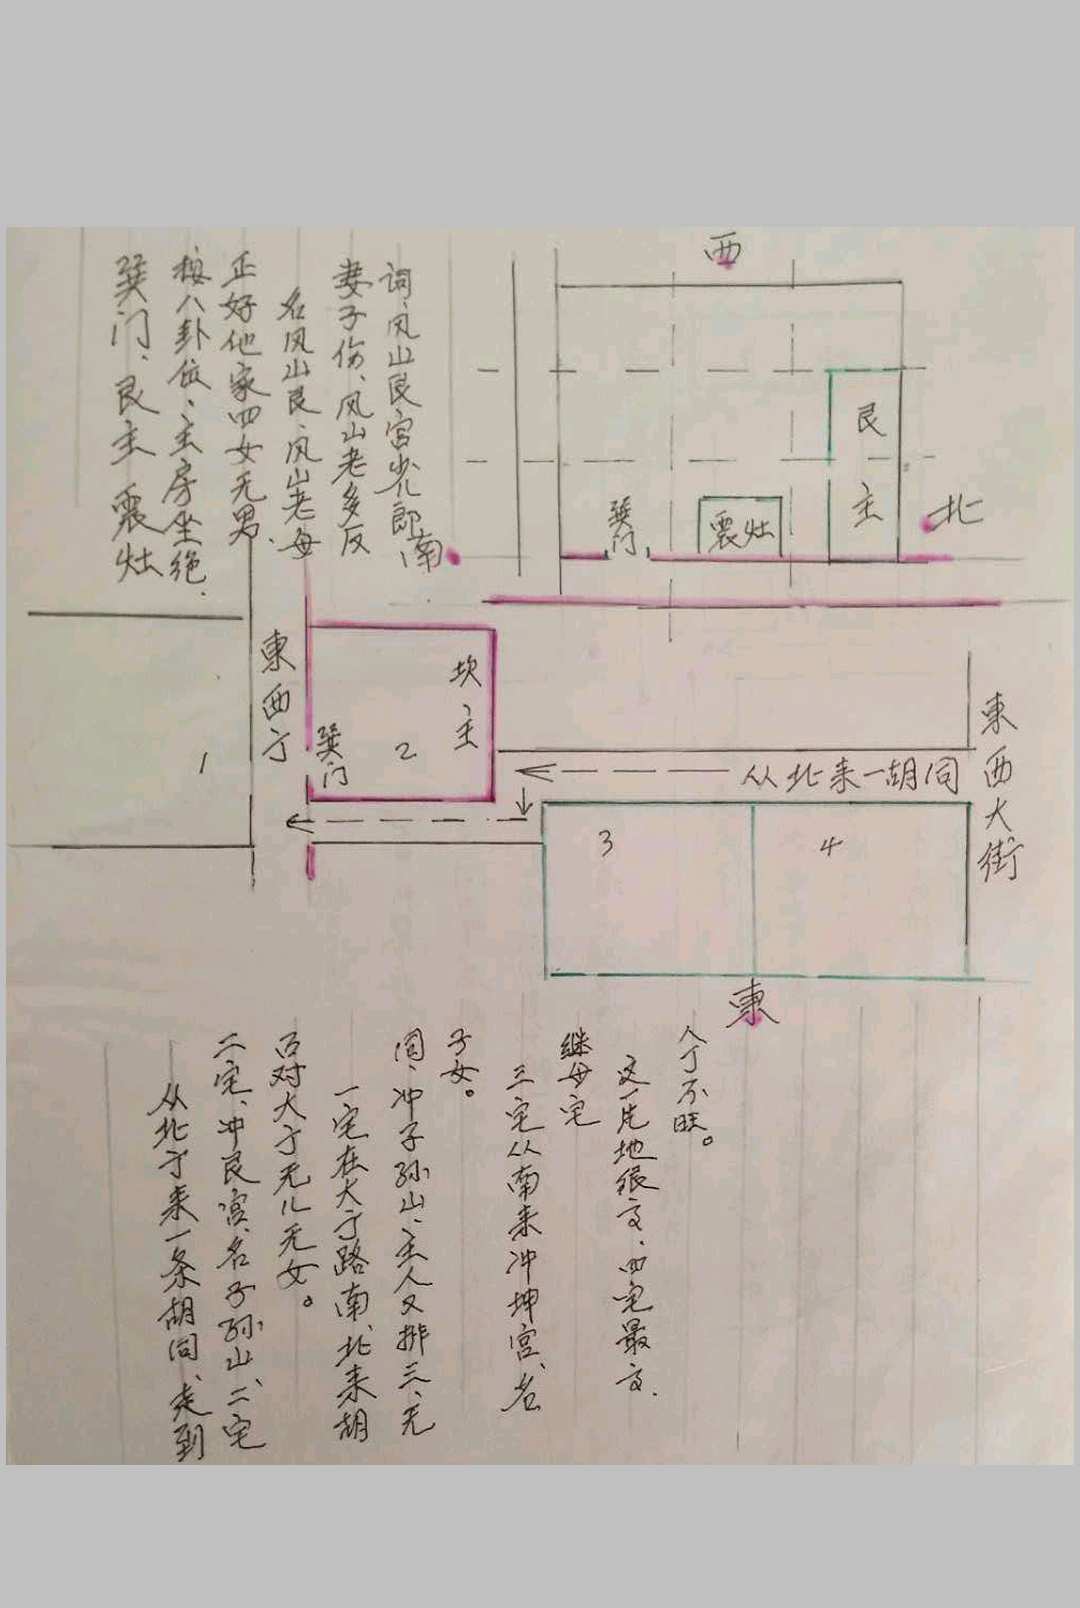 巽门、艮主震灶
按八卦位、主房坐绝、
正好他家四女无男、
名风山艮、风山老母
妻子伤、风山老多反
词、风山艮宫少儿郎
西
南
北
艮主
震灶
巽门
東西亍
坎主
巽门
1
2
从北来一胡同
3
4
東西大街
東
从北亍来一条胡同、走到
二宅、冲艮宫、名子孙山、二宅
百对大亍无儿无女。
一宅在大亍路南、北来胡
同、冲子孙山、主人又排三、无
子女。
三宅从南来冲坤宫、名
继母宅
这一片地很方、四宅最方、
人丁不旺。